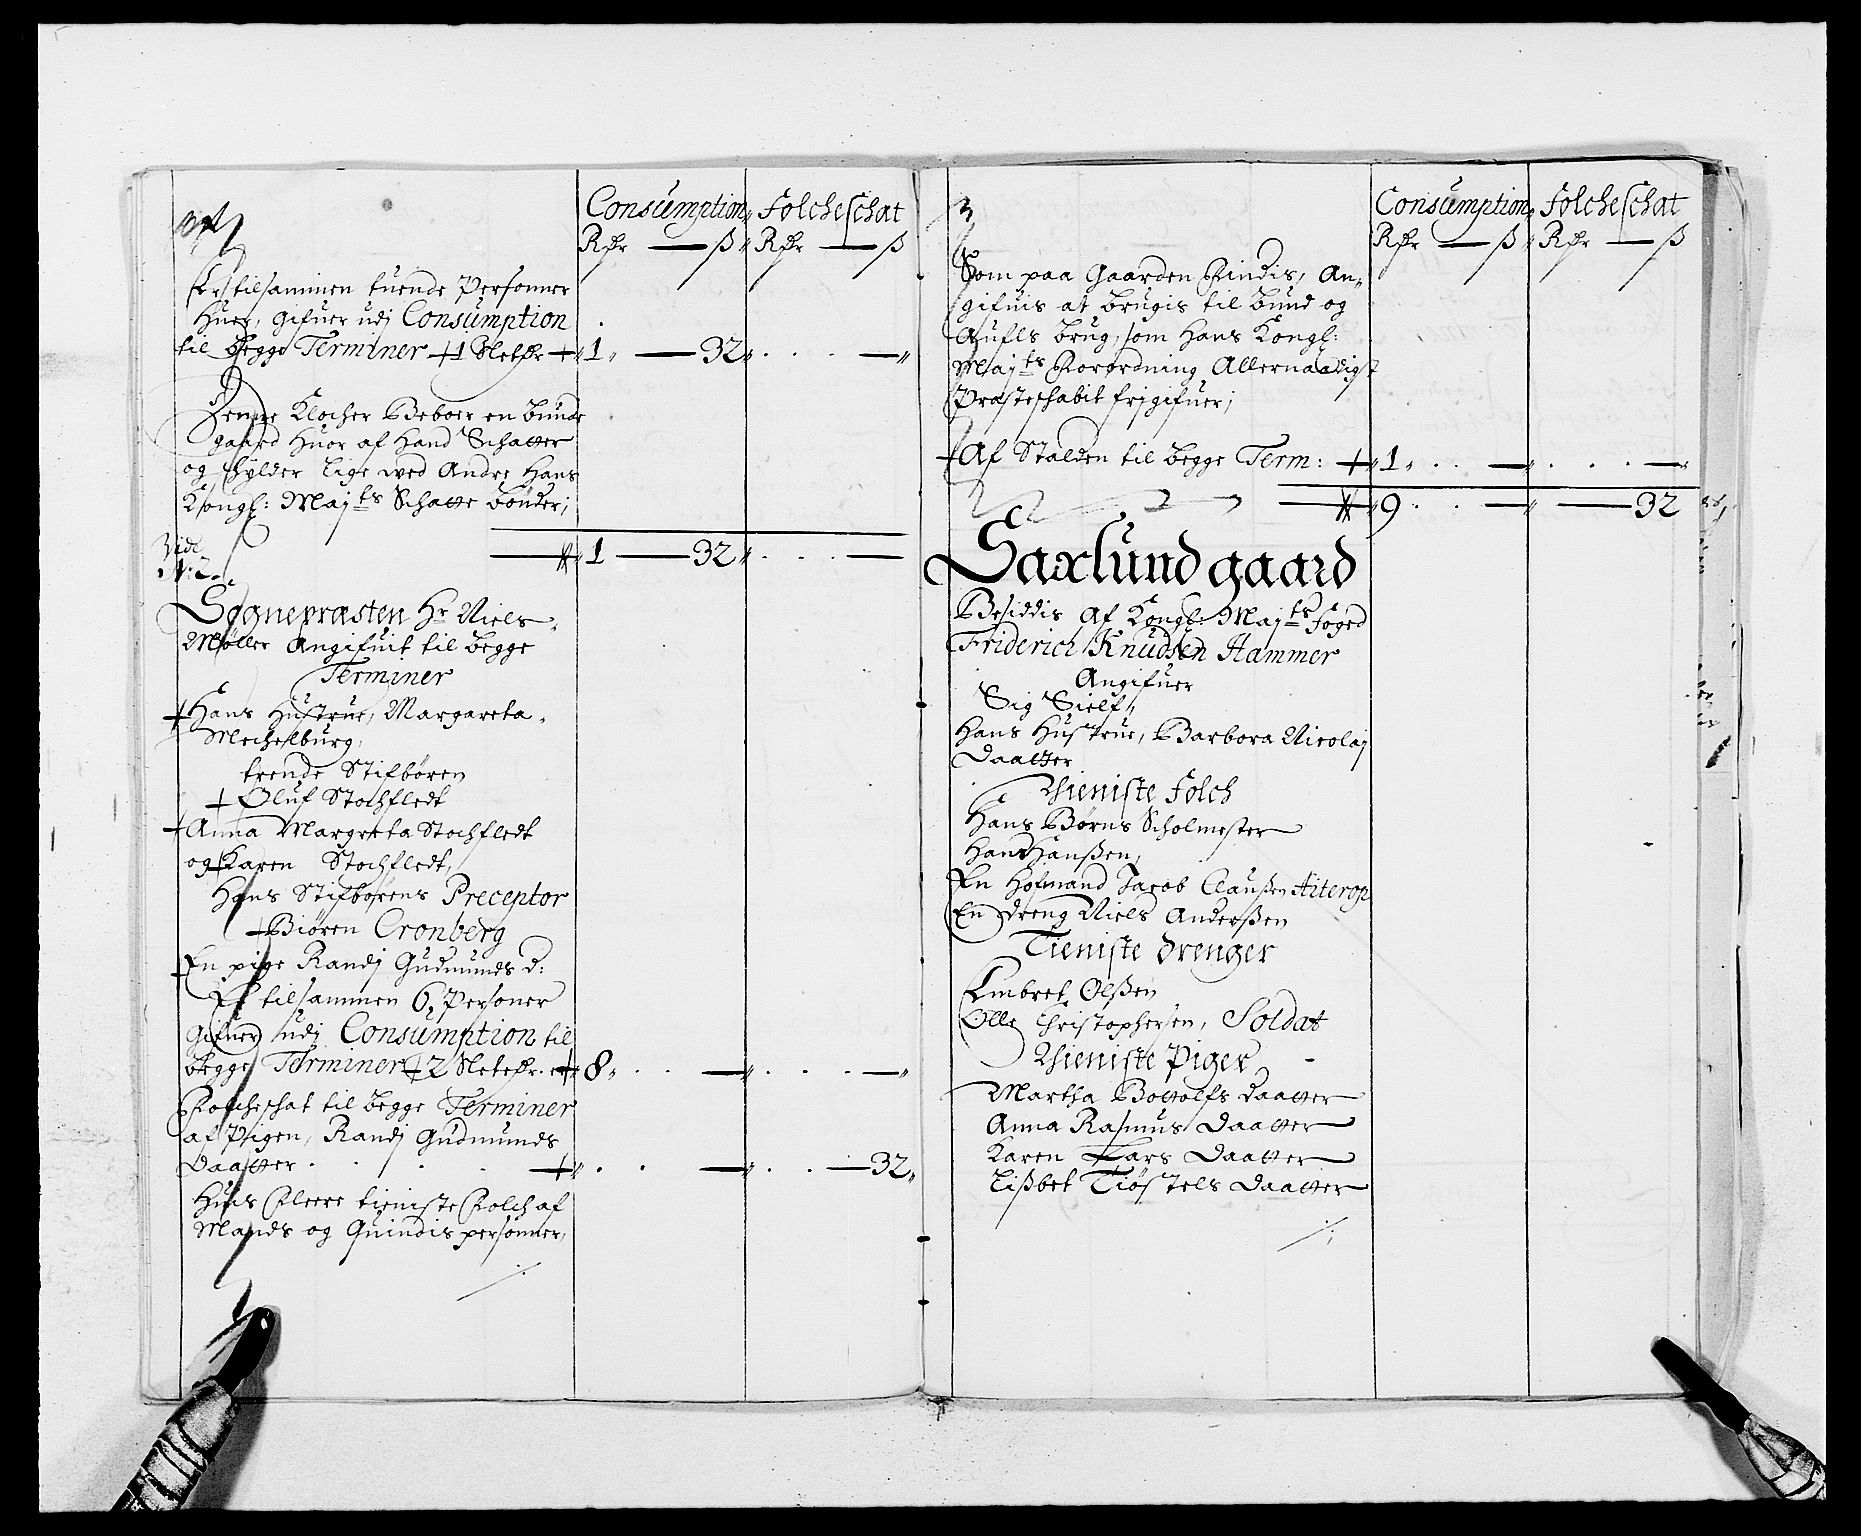 Consumption Folcheschat
Rdr — ß Rdr — ß
Er tilsammen tuende Personner
Huer, gifuer udj Consumption
til begge Terminer 1 Sletdr 1 — 32
Denne Klocher Beboer en bunde
gaard Huor af hand Schatter
og Schylder lige wed Andre Hans
Kongl: Majts Schatte bönder;
1 — 32
Vide
N: 2
Sognepræsten Hr Niels
Møller Angifuit til begge
Terminer
Hans Hustrue, Margareta
Mechelburg,
trende Stifbören
Oluf Stochfledt
Anna Margreta Stochfledt
og Karen Stochfledt,
Hans Stifbörens Preceptor
Biören Cronberg
En pige Randj Gudmunds d:
Er tilsammen 6, Personer
Gifuer udj Consumption til
begge Terminer 2 Sletedr. er 8
Folcheschat til begge Terminer
af Pigen, Randj Gudmunds
Daatter 32
Huis Fleere tieniste Folch af
Mands og Quindis personner,
./.
3
Consumption Folcheschat
Rdr — ß Rdr — ß
Som paa Gaarden Findis, An-
gifuis at brugis til bund og
Aufls brug, som Hans Kongl:
Majts Forordning Allernaadigst
Præsteschabit frj gifuer;
Af Stalden til begge Term: 1
9 — 32
Saxlund gaard
Besiddis Af Kongl: Majts Foged
Friderich Knudsen Hammer
Angifuer
Sig Sielf,
Hans Hustrue, Barbora Nicolaj
Daatter
Thieniste Folch
Hans Börns Scholmester
Hans Hanßen,
En Hofmand Jacob Claußen Aiterop
En dreng Niels Anderßen
Tieniste drenger
Embret Olßen
Olle Christophersen, Soldat
Thieniste Piger
Martha Bottolfs Daatter
Anna Rasmus Daatter
Karen Lars Daatter
Lißbet Tiöstels Daatter
./.